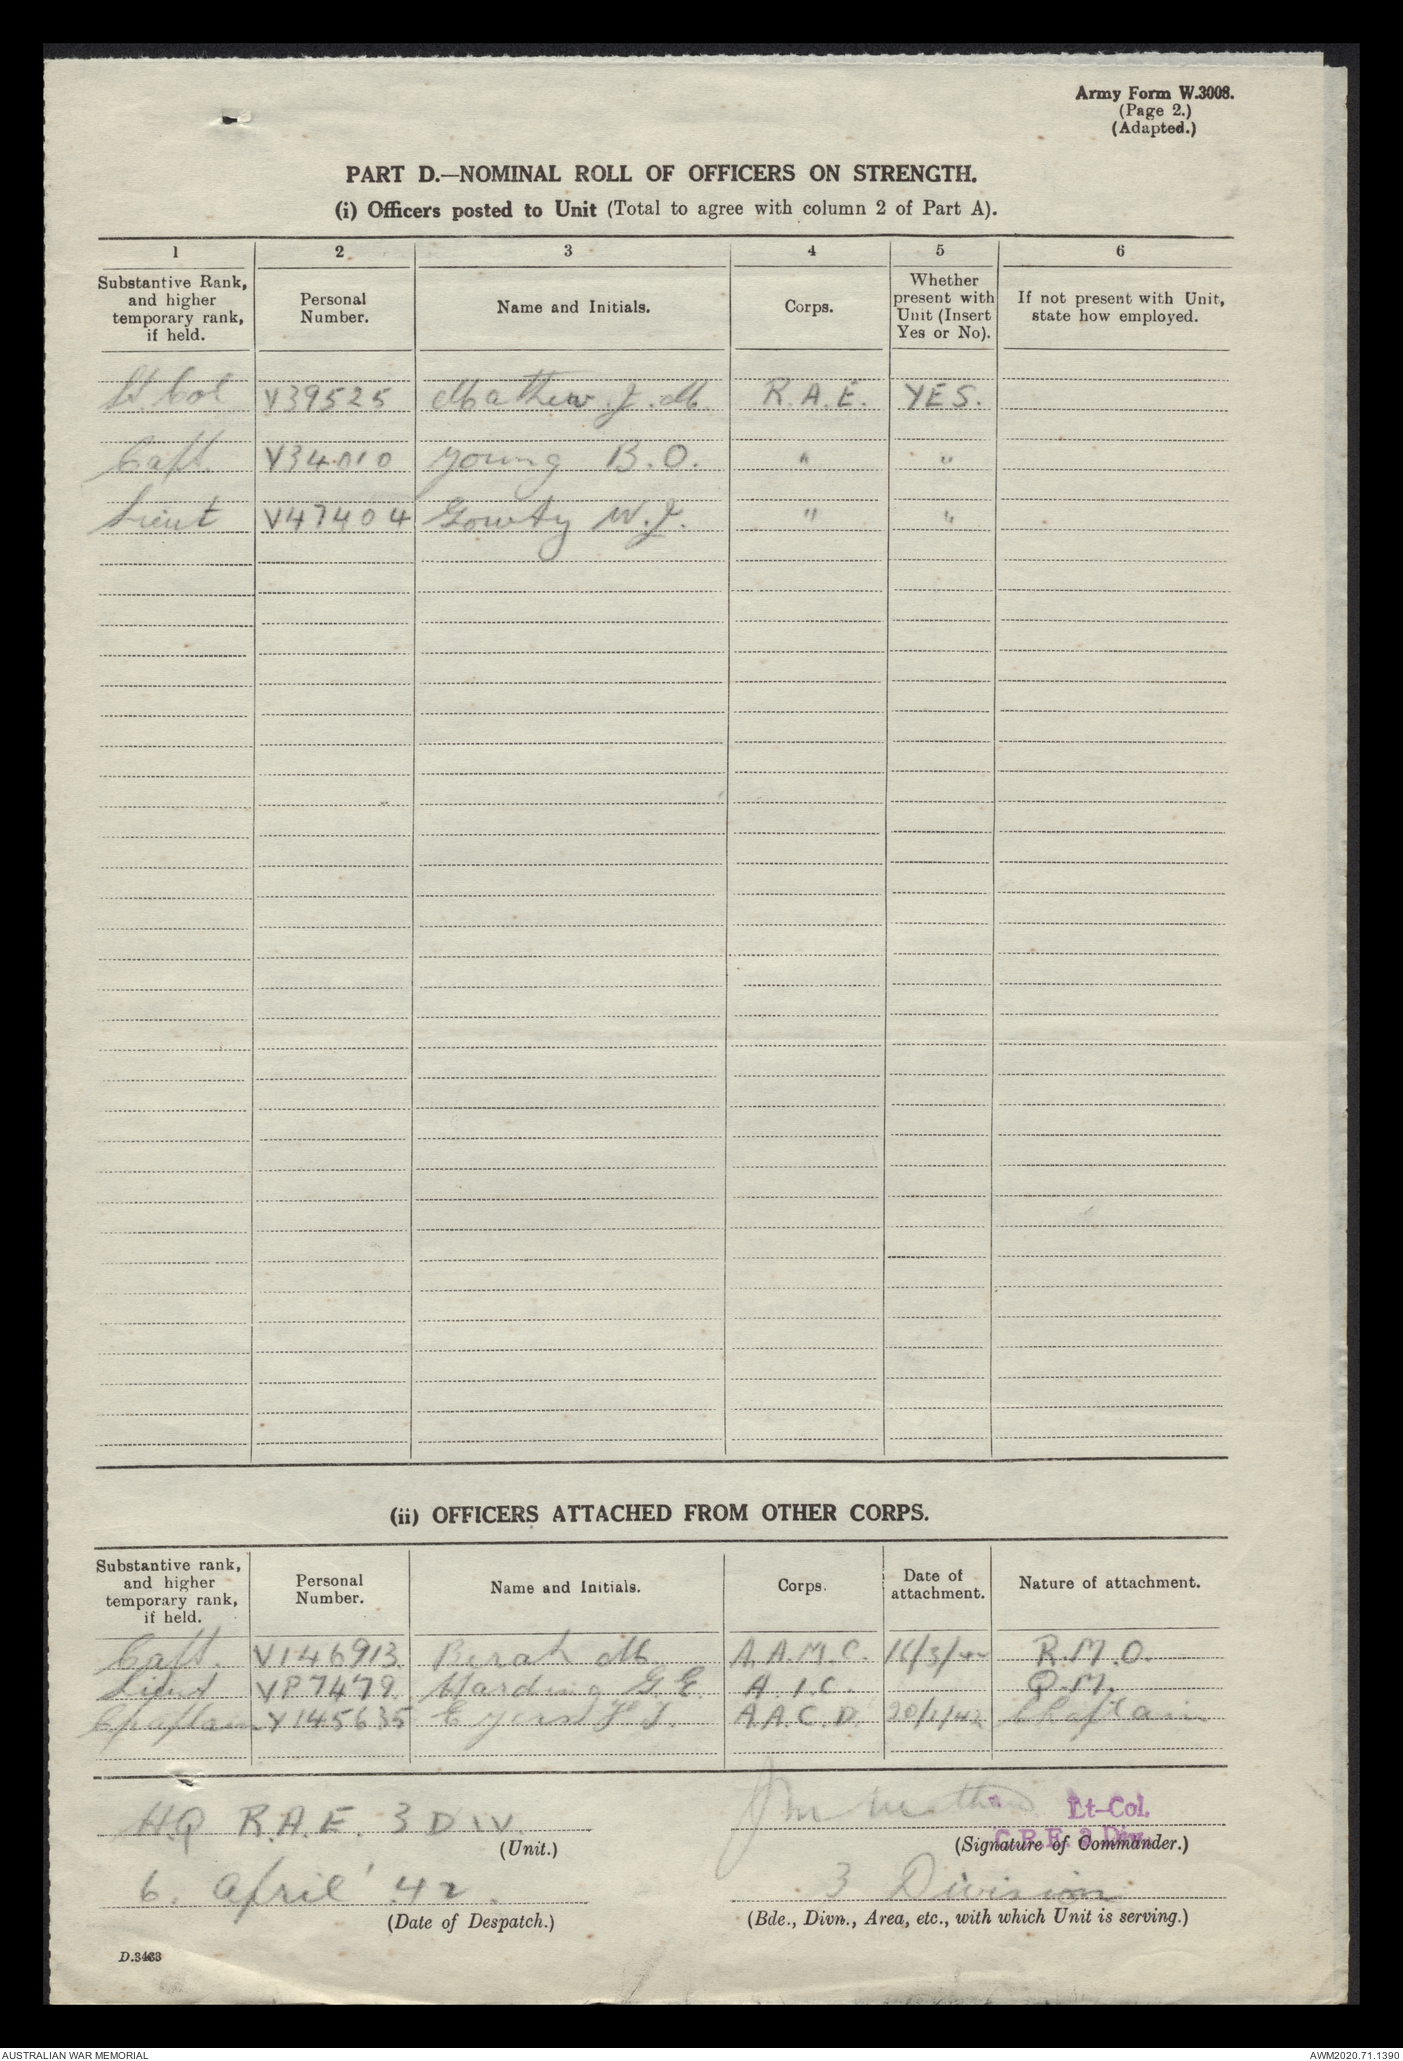 Army Form W.3008.
(Page 2.)
(Adapted.)
PART D.—NOMINAL ROLL OF OFFICERS ON STRENGTH.
(i) Officers posted to Unit (Total to agree with column 2 of Part A).
1 2 3 4 5 6
Substantive Rank, and higher temporary rank, if held. Personal Number. Name and Initials. Corps. Whether present with Unit (Insert Yes or No). If not present with Unit, state how employed.
Lt. Col V39525 Mathew. J. M. R.A.E. YES.
Capt. V34010 Young B.O. " "
Lieut V47404 Gowty W.J. " "
(ii) OFFICERS ATTACHED FROM OTHER CORPS.
Substantive rank, and higher temporary rank, if held. Personal Number. Name and Initials. Corps. Date of attachment. Nature of attachment.
Capt. V146913 Berah M. A.A.M.C. R.M.O.
Lieut VP7479 Harding G.E. A.I.C. Q.M.
Chaplain V145635 A.A.C.D. Chaplain
H.Q R.A.E. 3 DIV.
(Unit.)
Lt-Col.
C.R.E. 3 Div.
(Signature of Commander.)
6. April 42.
(Date of Despatch.)
3 Division
(Bde., Divn., Area, etc., with which Unit is serving.)
D.3433
AUSTRALIAN WAR MEMORIAL
AWM2020.71.1390